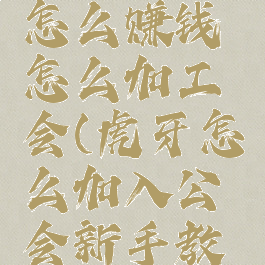 怎么赚钱
怎么加工
会(虎牙怎
么加入公
会新手教